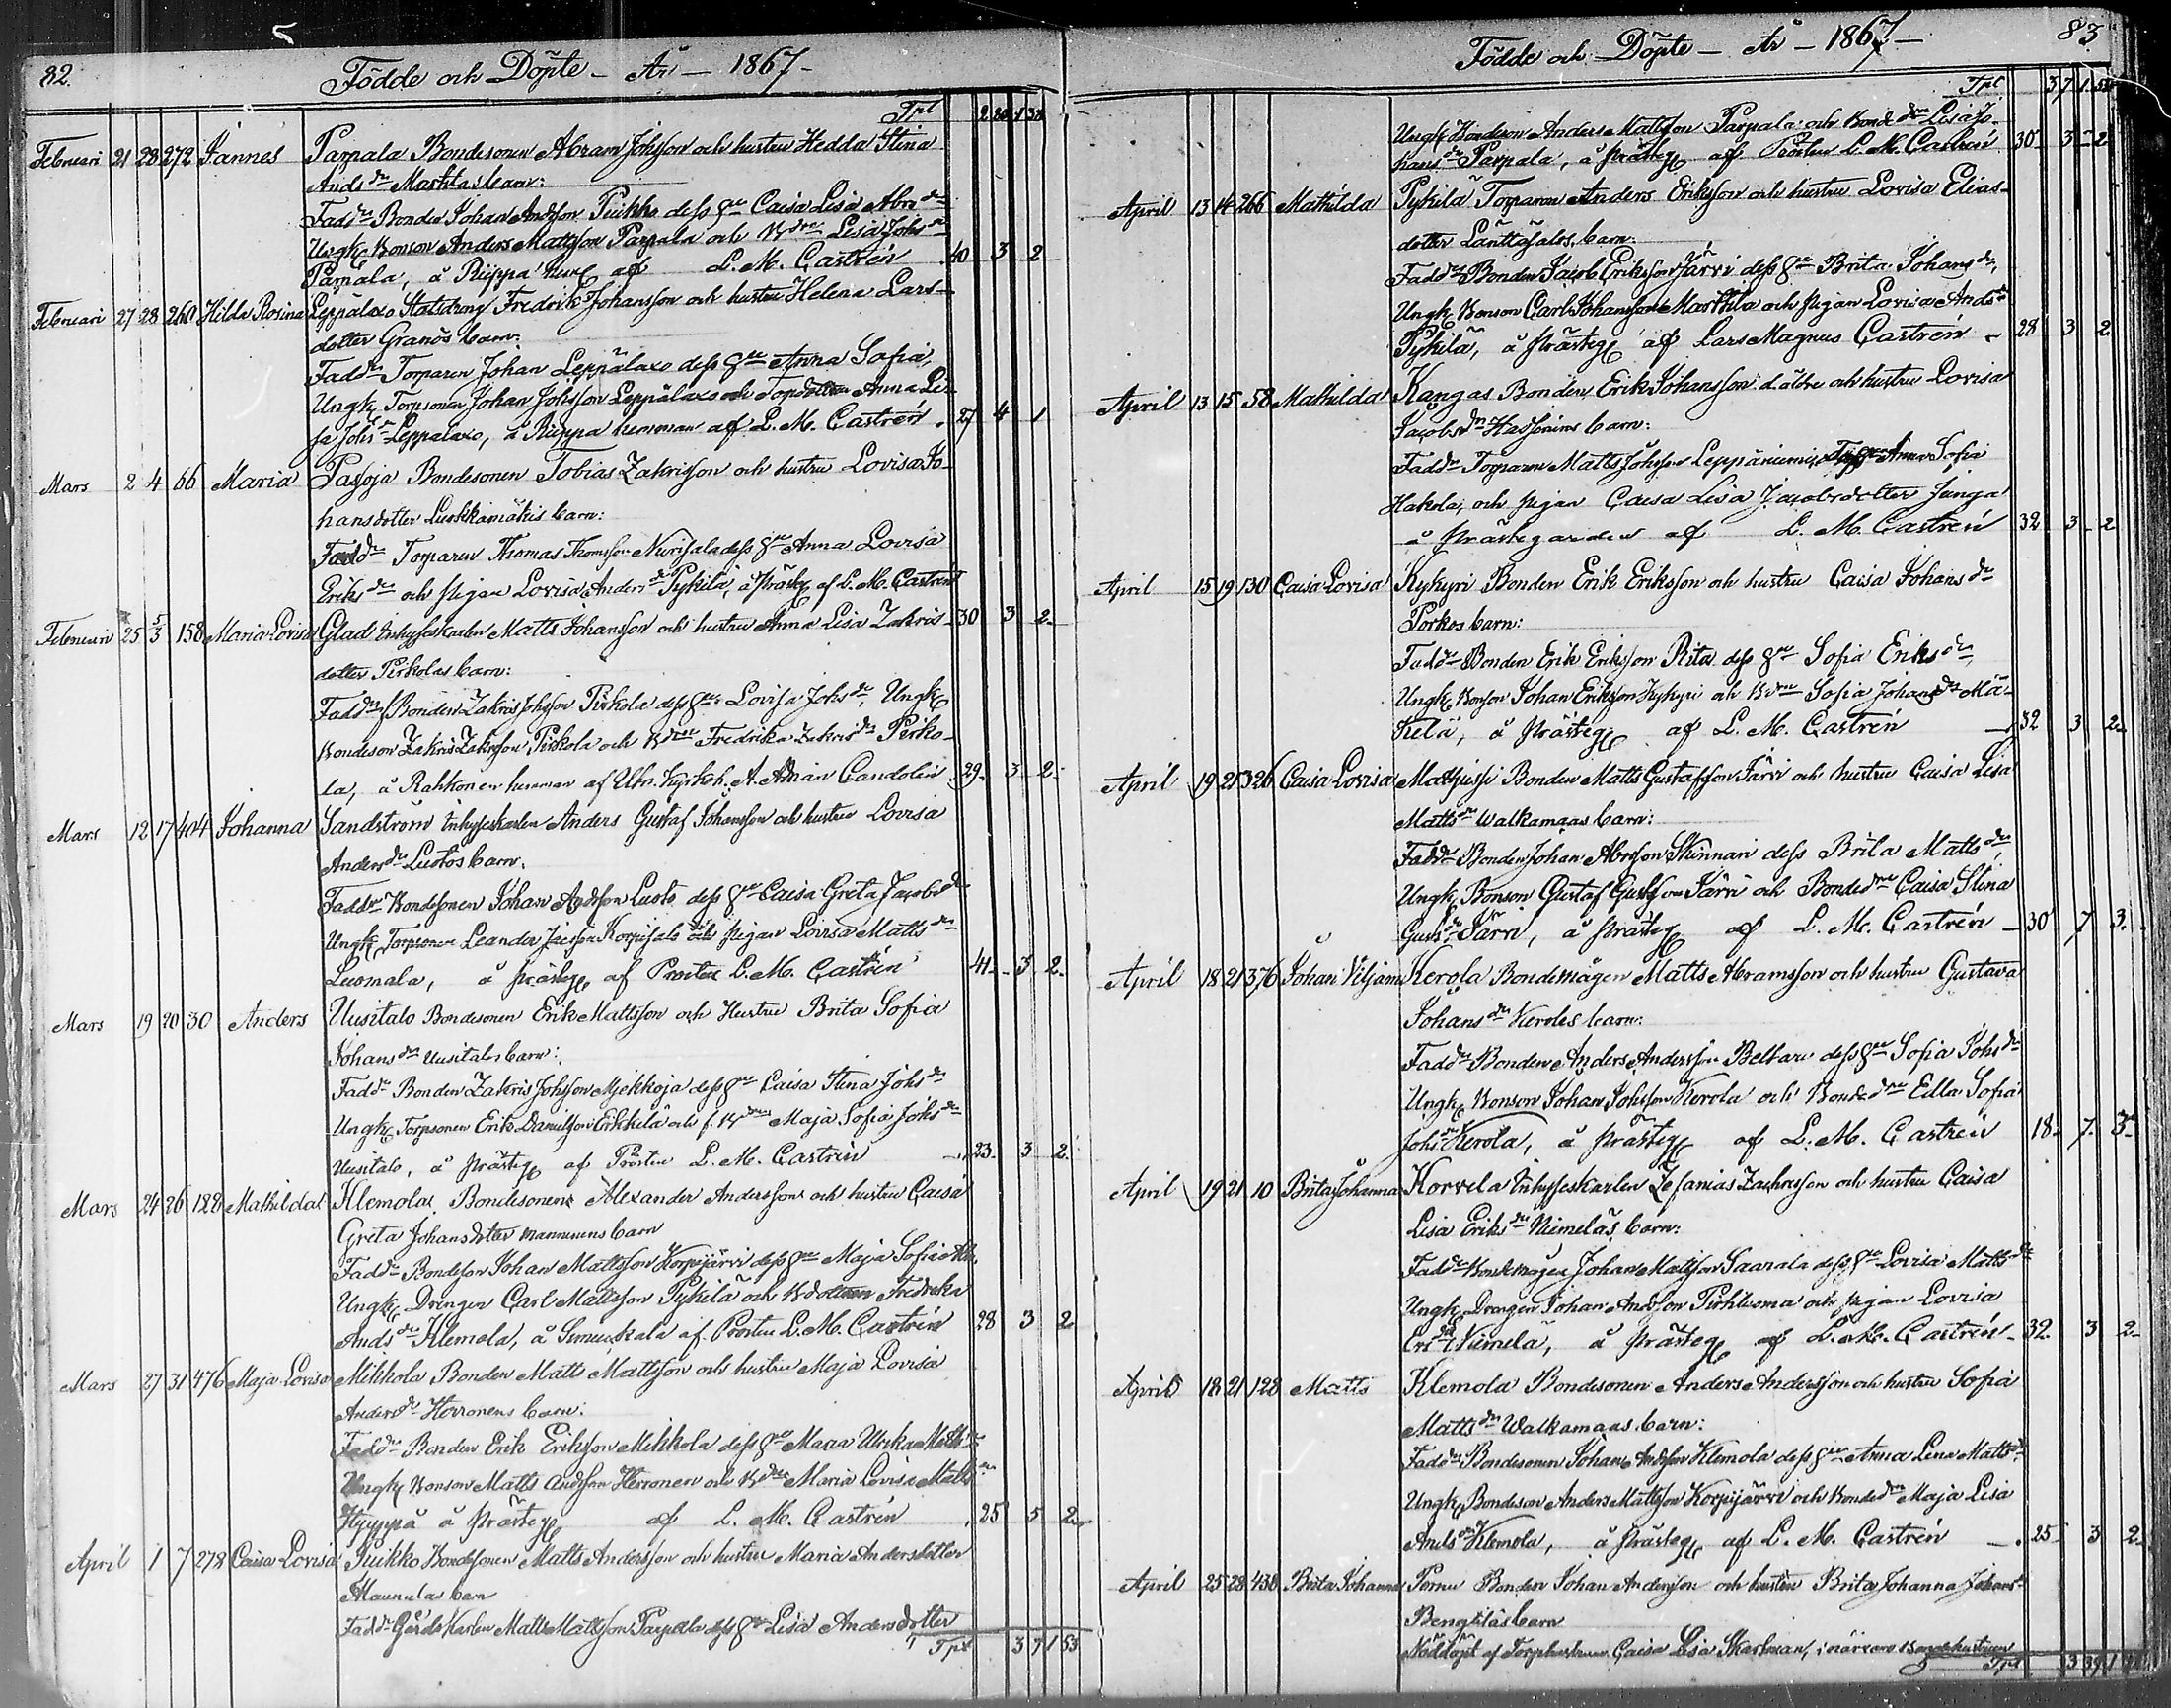 82.
Födde och Döpte – År – 1867 –
Tpt 2 20 1 38
Februari 21 28 272 Hannes Parpala Bondesonen Abram Johsson och hustru Hedda Stina
Andsdr Marttilas barn:
Faddr Bonden Johan Andsson Puikko dess qu Caisa Lisa Abrdr
Ungk Bonson Anders Mattsson Parpala och Bdrn Lisa Johsdr
Parpala, å Ruppa hem af L. M. Castrén 40 3 2
Februari 27 28 260 Hilda Rosina Leppälaxo Statsdräng Fredrik Johansson och hustru Helena Lars-
dotter Granös barn:
Faddr Torparen Johan Leppälaxo dess qu Anna Sofia,
Ungk Torpsonen Johan Johsson Leppälaxo och Torpdottren Anna Li-
sa Johsdr Leppälaxo, å Ruppa hemman af L. M. Castrén. 27 4 1
Mars 2 4 66 Maria Passoja Bondesonen Tobias Zakrisson och hustru Lovisa Jo-
hansdotter Luokkamäkis barn:
Faddr Torparen Thomas Thomsson Nurisala dess qu Anna Lovisa
Eriksdr och pigan Lovisa Andersdr Pykilä, å prästg af L. M. Castrén
Februari 25 5/3 158 Maria Lovisa Glad Inhyseskarlen Matts Johansson och hustru Anna Lisa Zakris- 30 3 2
dotter Pirkolas barn:
Faddr Bonden Zakris Johsson Pirkola dess qu Lovisa Johsdr, Ungk
Bondeson Zakris Zakrsson Pirkola och Bdrn Fredrika Zakrisdr Pirko-
la, å Rahkonen hemman af Utn. Kyrkoh. A. Adrian Candolin 29 3 2
Mars 12 17 404 Johanna Sandström Inhyseskarlen Anders Gustaf Johansson och hustru Lovisa
Andersdr Luotos barn.
Faddr Bondesonen Johan Andsson Luoto dess qu Caisa Greta Jacobsdr
Ungk Torpsonen Leander Jacsson Korpisalo och pigan Lovisa Mattsdr
Luomala, å prästg af Prosten L. M. Castrén 41 3 2
Mars 19 20 30 Anders Uusitalo Bondesonen Erik Mattsson och Hustru Brita Sofia
Johansdr Uusitalos barn:
Faddr Bonden Zakris Johsson Myekkoja dess qu Caisa Stina Johsdr
Ungk Torpsonen Erik Danielsson Erkkilä och f. Bdrn Maja Sofia Johsdr
Uusitalo, å prästg af Prosten L. M. Castrén 23 3 2
Mars 24 26 128 Mathilda Klemola Bondesonen Alexander Andersson och hustru Caisa
Greta Johansdotter Mannunens barn
Faddr Bondeson Johan Mattsson Korpijärvi dess qu Maja Sofia
Ungk Drengen Carl Mattsson Pykilä och Bdottren Fredrika
Andsdr Klemola, å Simuskala af Prosten L. M. Castrén 28 3 2
Mars 27 31 476 Maja Lovisa Mikkola Bonden Matts Mattsson och hustru Maja Lovisa
Andersdr Herronens barn:
Faddr Bonden Erik Eriksson Mikkola dess qu Maria Ulrika Mattsdr
Ungk Bonson Matts Andsson Herronen och Bdrn Maria Lovisa Mattsdr
Hyyppä å prästg af L. M. Castrén 25 5 2
April 1 7 278 Caisa Lovisa Puikko Bondesonen Matts Andersson och hustru Maria Andersdotter
Maunulas barn
Faddr Gårds Karlen Matts Mattsson Parpala dess qu Lisa Andersdotter
Tpt 3 7 1 53
Födde och Döpte – År – 1867 –
83
Tpt 3 7 1 53
Ungk Bondeson Anders Mattsson Parpala och Bondedrn Lisa Jo-
hansdr Parpala, å prästg af Prosten L. M. Castrén 30 3 2
April 13 14 266 Mathilda Pykilä Torparen Anders Eriksson och hustru Lovisa Elias-
dotter Länttäsalos barn:
Faddr Bonden Jacob Eriksson Järvi dess qu Brita Johansdr,
Ungk Bonson Carl Johansson Marttila och pigan Lovisa Andsdr
Pykilä, å prästg af Lars Magnus Castrén 28 3 2
April 13 15 58 Mathilda Kangas Bonden Erik Johansson d. äldre och hustru Lovisa
Jacobsdr Hassinens barn:
Faddr Torparen Matts Johsson Leppäniemi, Anna Sofia
Hakola, och pigan Caisa Lisa Jacobsdotter Junga
å prästegården af L. M. Castrén 32 3 2
April 15 19 130 Caisa Lovisa Kykyri Bonden Erik Eriksson och hustru Caisa Johansdr
Porkos barn:
Faddr Bonden Erik Eriksson Rita dess qu Sofia Eriksdr,
Ungk Bonson Johan Eriksson Kykyri och Bdrn Sofia Johansdr Mä-
kelä, å prästeg af L. M. Castrén 32 3 2
April 19 21 326 Caisa Lovisa Matjussi Bonden Matts Gustafsson Järvi och hustru Caisa Lisa
Mattsdr Walkamaas barn:
Faddr Bonden Johan Abrsson Skinnari dess Brita Mattsdr,
Ungk Bonson Gustaf Gustsson Järvi och Bondedrn Caisa Stina
Gustsdr Järvi, å prästeg af L. M. Castrén 30 7 3
April 18 21 376 Johan Viljam Kerola Bondemågen Matts Abramsson och hustru Gustava
Johansdr Kerolas barn:
Faddr Bonden Anders Andersson Beltare dess qu Sofia Johsdr
Ungk Bonson Johan Johsson Kerola och Bondedrn Edla Sofia
Johsdr Kerola, å prästeg af L. M. Castrén 18 7 3
April 19 21 10 Brita Johanna Korvela Inhyseskarlen Zefanias Zachrisson och hustru Caisa
Lisa Eriksdr Niemeläs barn:
Faddr Bondemågen Johan Mattsson Saarala dess qu Lovisa Mattsdr
Ungk Drengen Johan Andsson Pirttiuoma och pigan Lovisa
Ersdr Niemelä, å prästeg af L. M. Castrén 32 3 2
April 18 21 128 Matts Klemola Bondesonen Anders Andersson och hustru Sofia
Mattsdr Walkamaas barn:
Faddr Bondesonen Johan Andsson Klemola dess qu Anna Lena Mattsdr
Ungk Bondeson Anders Mattsson Korpijärvi och Bondedrn Maja Lisa
Andsdr Klemola, å prästeg af L. M. Castrén 25 3 2
April 25 28 438 Brita Johanna Pernu Bonden Johan Andersson och hustru Brita Johanna Johans-
Bengtiläs barn
Nöddöpt af Torphustrun Caisa Lisa Skarfman, i närvaro Bondehustrun
Tpt 3